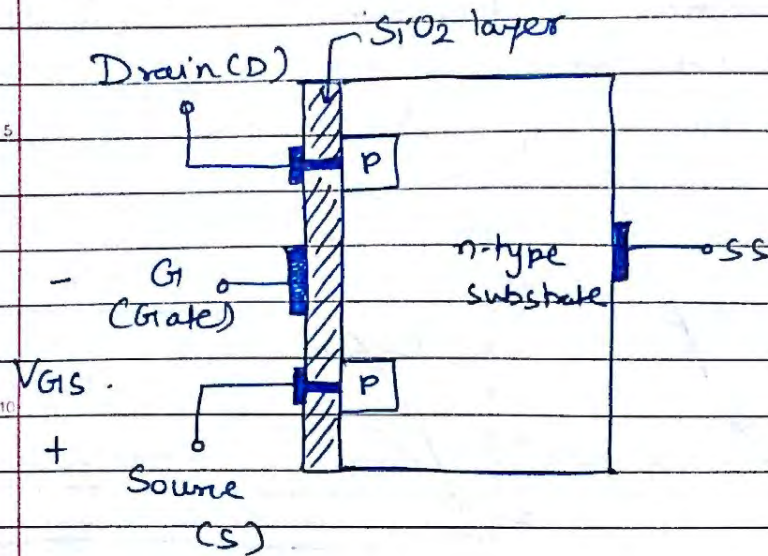 SiO2 layer
Drain (D)
5
P
- G
(Gate)
n-type
substrate
SS
VGS.
P
10
+
Source
(S)